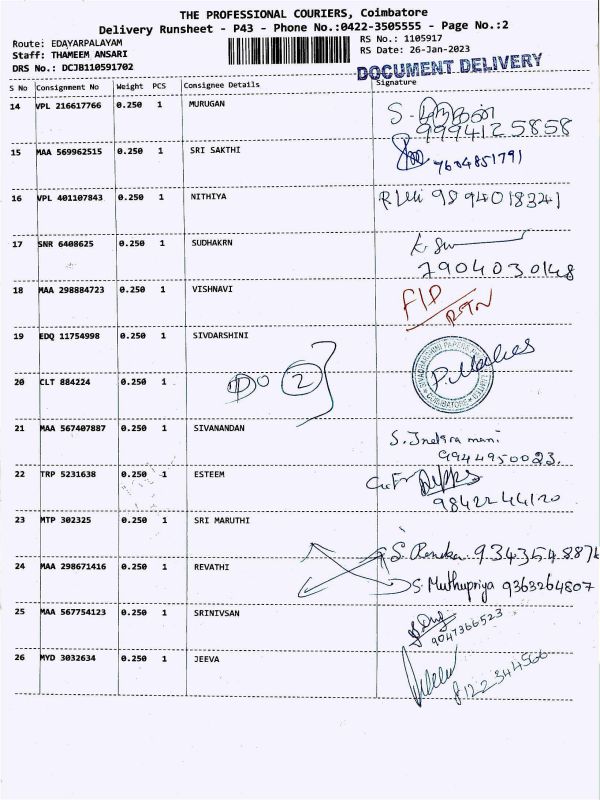 THE PROFESSIONAL COURIERS, Coimbatore
Delivery Runsheet - P43 - Phone No.:0422-3505555 - Page No.:2
Route: EDAYARPALAYAM
Staff: THAMEEM ANSARI
DRS No.: DCJB110591702
RS No.: 1105917
RS Date: 26-Jan-2023
DOCUMENT DELIVERY
S No Consignment No Weight PCS Consignee Details Signature
14 VPL 216617766 0.250 1 MURUGAN
9994125858
15 MAA 569962515 0.250 1 SRI SAKTHI
7604851791
16 VPL 401107843 0.250 1 NITHIYA 98940183241
17 SNR 6408625 0.250 1 SUDHAKRN
7904030148
18 MAA 298884723 0.250 1 VISHNAVI
RTN
19 EDQ 11754998 0.250 1 SIVDARSHINI
20 CLT 884224 0.250 1 DO 2
21 MAA 567407887 0.250 1 SIVANANDAN S. Indira mani
9944950023.
22 TRP 5231638 0.250 1 ESTEEM
9842244120
23 MTP 302325 0.250 1 SRI MARUTHI
S. Renuka 9343548876
24 MAA 298671416 0.250 1 REVATHI
S. Muthupriya 9363264807
25 MAA 567754123 0.250 1 SRINIVSAN
9047366523
26 MYD 3032634 0.250 1 JEEVA
8122344566